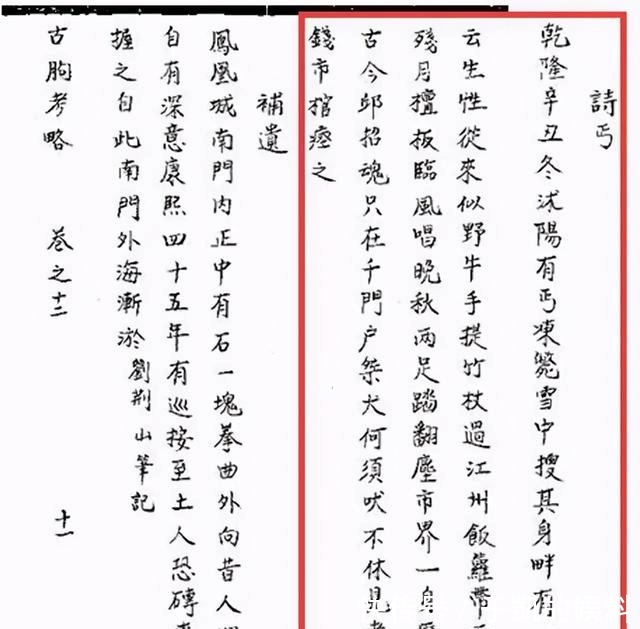 詩丐
乾隆辛丑冬沭陽有丐凍斃雪中搜其身畔有
云生性從來似野牛手提竹杖過江州飯籮帶
殘月檀板臨風唱晚秋兩足踏翻塵市界一
古今邱招魂只在千門户桀犬何須吠不休見
錢市棺瘞之
補遺
鳳凰城南門内正中有石一塊拳曲外向昔人
自有深意康熙四十五年有巡按至土人恐磚
握之自此南門外海漸淤 劉荆山筆記
古朐考略 卷之十二 十一